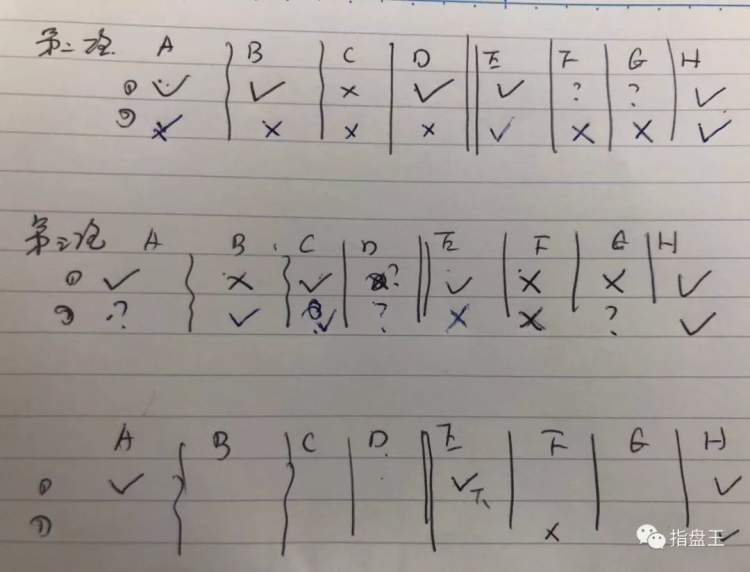 第二轮 A B C D E F G H
① ✓ ✓ × ✓ ✓ ? ? ✓
② × × × × ✓ × × ✓
第三轮 A B C D E F G H
① ✓ × ✓ ? ✓ × × ✓
② ? ✓ ✓ ? × × ? ✓
A B C D E F G H
① ✓ ✓ ✓
② × ✓
指盘王